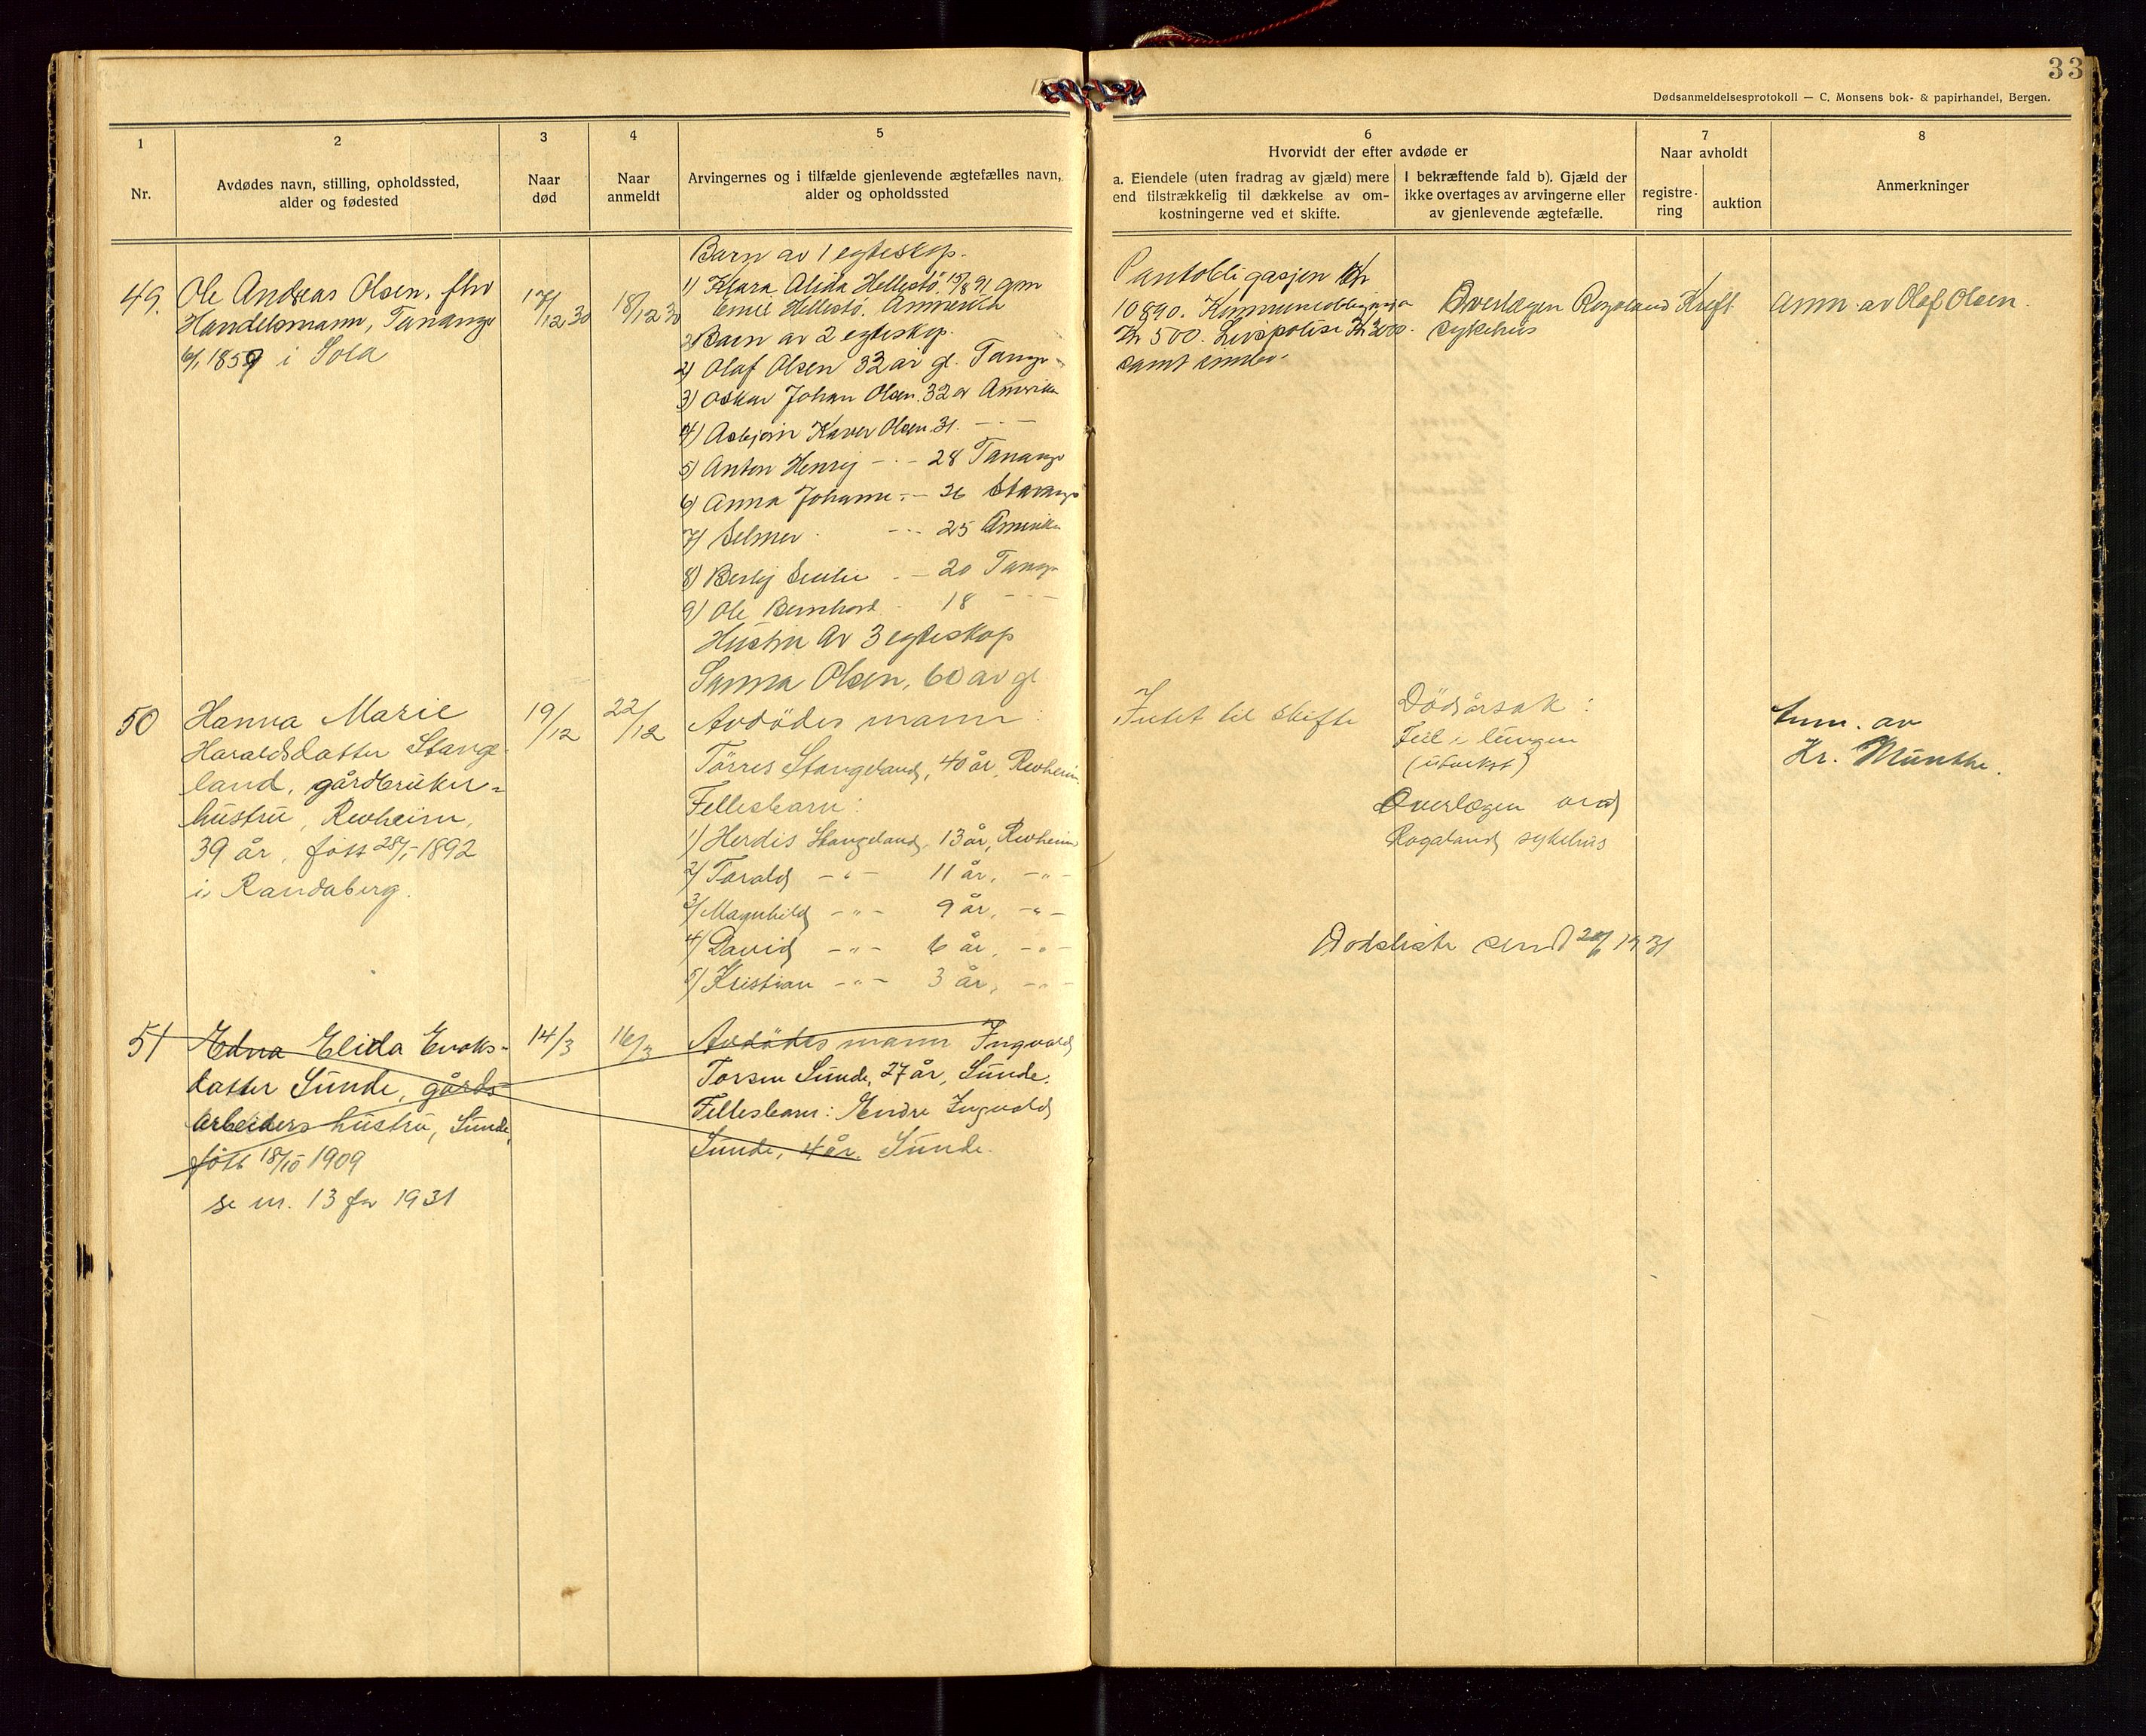 33
Dødsanmeldelsesprotokoll — C. Monsens bok- & papirhandel, Bergen.
1
Nr.
2
Avdødes navn, stilling, opholdssted,
alder og fødested
3
Naar
død
4
Naar
anmeldt
5
Arvingernes og i tilfælde gjenlevende ægtefælles navn,
alder og opholdssted
6
Hvorvidt der efter avdøde er
a. Eiendele (uten fradrag av gjæld) mere
end tilstrækkelig til dækkelse av om-
kostningerne ved et skifte.
I bekræftende fald b). Gjæld der
ikke overtages av arvingerne eller
av gjenlevende ægtefælle.
7
Naar avholdt
registre-
ring
auktion
8
Anmerkninger
49.
Ole Andreas Olsen, fhv
Handelsmann, Tananger
6/1 1859 i Sola
17/12 30
18/12 30
Barn av 1 egteskap.
1) Klara Alida Hellestö, 15/8 91 gm
Emil Hellestö, Amerika
Barn av 2 egteskap.
2) Olaf Olsen 32 år gl. Tanangr
3) Oskar Johan Olsen. 32 år Amerika
4) Asbjörn Xaver Olsen. 31. — " —
5) Anton Henrij — " — 28 Tananger
6) Anna Johanne — " — 26 Stavanger
7) Selmer — " — 25 Amerika
8) Cecilie — 20 Tanangr
9) Ole Bernhard 18 — " —
Hustru av 3 egteskap
Sanna Olsen, 60 år gl
Pantobligasjon Kr
10890. Kommuneobligasjon
Kr 500. Livspolise Kr 3000.
samt innbo.
Overlægen Rogaland Kreft
sykehus
Anm. av Olaf Olsen.
50
Hanna Marie
Haraldsdatter Stange-
land, gårdbruker-
hustru, Revheim,
39 år, født 28/1-1892
i Randaberg.
19/12
22/12
Avdödes mann:
Törres Stangeland, 40 år, Revheim.
Fellesbarn:
1/ Herdis Stangeland, 13 år, Revheim
2/ Torald — " — 11 år, — " —
3/ Magnhild — " — 9 år, — " —
4/ David — " — 6 år, — " —
5/ Kristian — " — 3 år, — " —
Intet til skifte
Dödsårsak:
Feil i lungen
Overlægen ved
Rogaland sykehus
Anm. av
Kr. Munthe.
Dødsliste send 1931
51
Edna Elida Enoks-
datter Sunde, gårds-
arbeiders hustru, Sunde,
født 18/10 1909
se nr. 13 for 1931
14/3
16/3
Avdödes mann Ingvald
Torsen Sunde, 27 år, Sunde.
Fellesbarn: Endre Ingvald
Sunde, 4 år. Sunde.